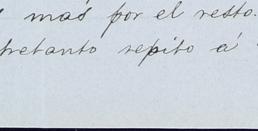 más por el resto.
tretanto repito á